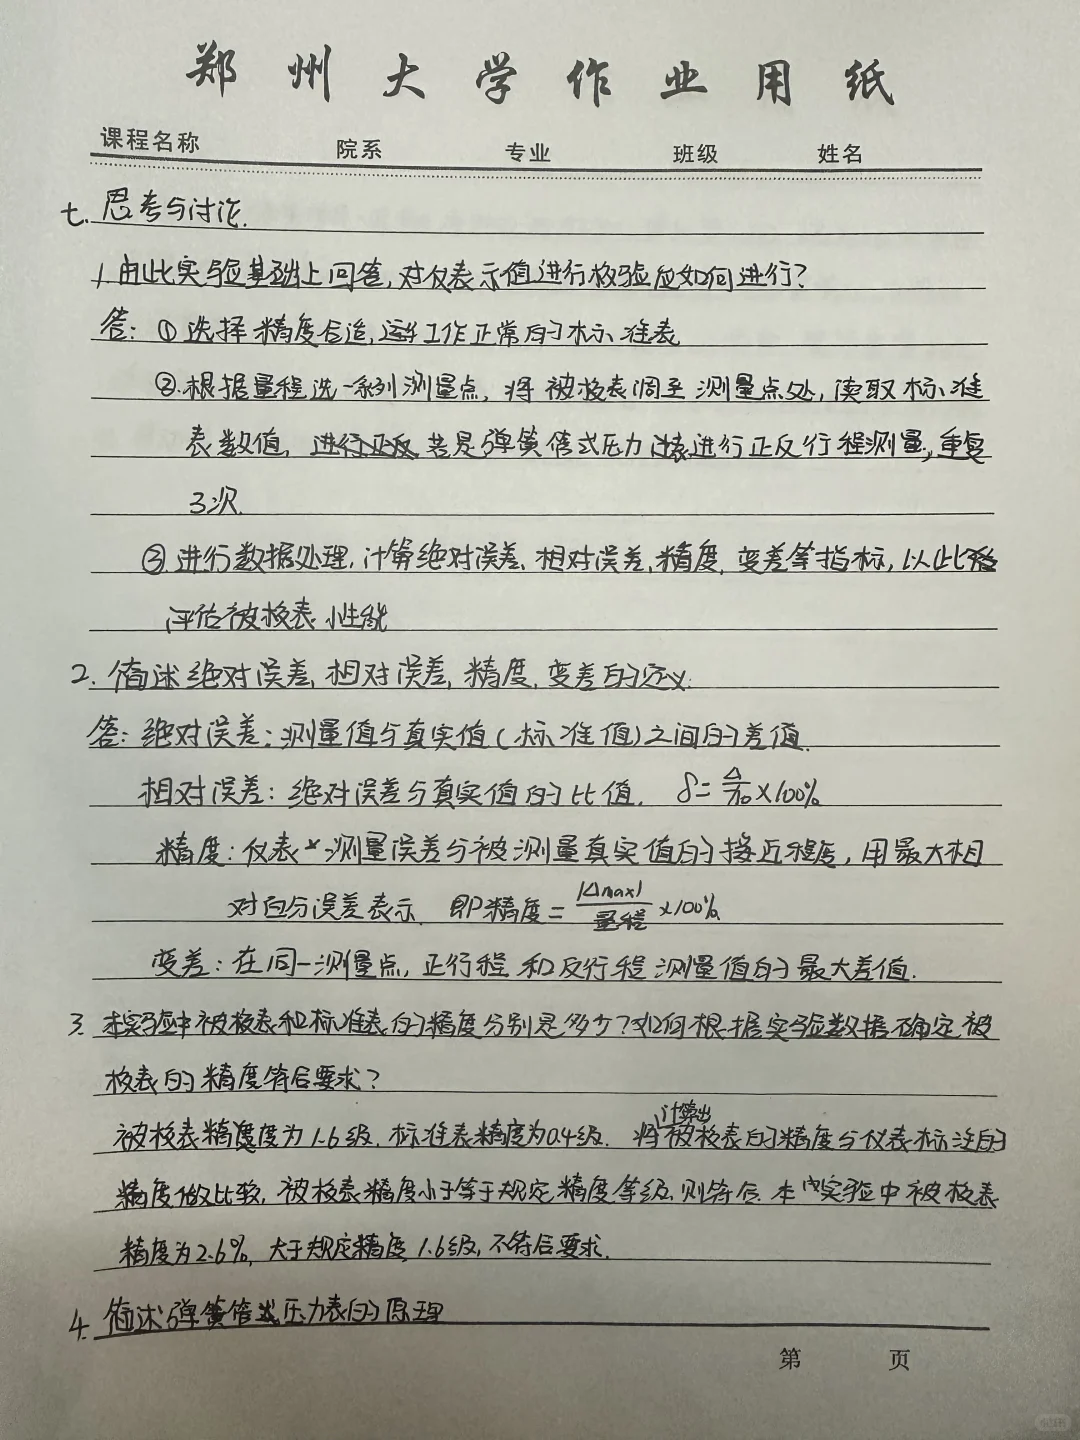 郑州大学作业用纸
课程名称 院系 专业 班级 姓名
七.思考与讨论.
1.由此实验基础上回答,对仪表示值进行校验应如何进行?
答:①选择精度合适,运行工作正常的标准表
②.根据量程选一系列测量点,将被校表调至测量点处,读取标准
表数值,进行正反若是弹簧管式压力表进行正反行程测量,重复
3次.
③.进行数据处理,计算绝对误差、相对误差,精度、变差等指标,以此
评估被校表性能
2.简述绝对误差,相对误差,精度、变差的定义.
答:绝对误差:测量值与真实值(标准值)之间的差值.
相对误差:绝对误差与真实值的比值. δ=Δ/x0×100%
精度:仪表测量误差与被测量真实值的接近程度,用最大相
对百分误差表示.即精度=|Δmax|/量程×100%.
变差:在同一测量点,正行程和反行程测量值的最大差值.
3.本实验中被校表和标准表的精度分别是多少?如何根据实验数据确定被
校表的精度符合要求?
计算出
被校表精度度为1.6级.标准表精度为0.4级. 将被校表的精度与仪表标注的
精度做比较,被校表精度小于等于规定精度等级,则符合.本实验中被校表
精度为2.6%,大于规定精度1.6级,不符合要求.
4.简述弹簧管式压力表的原理
第 页